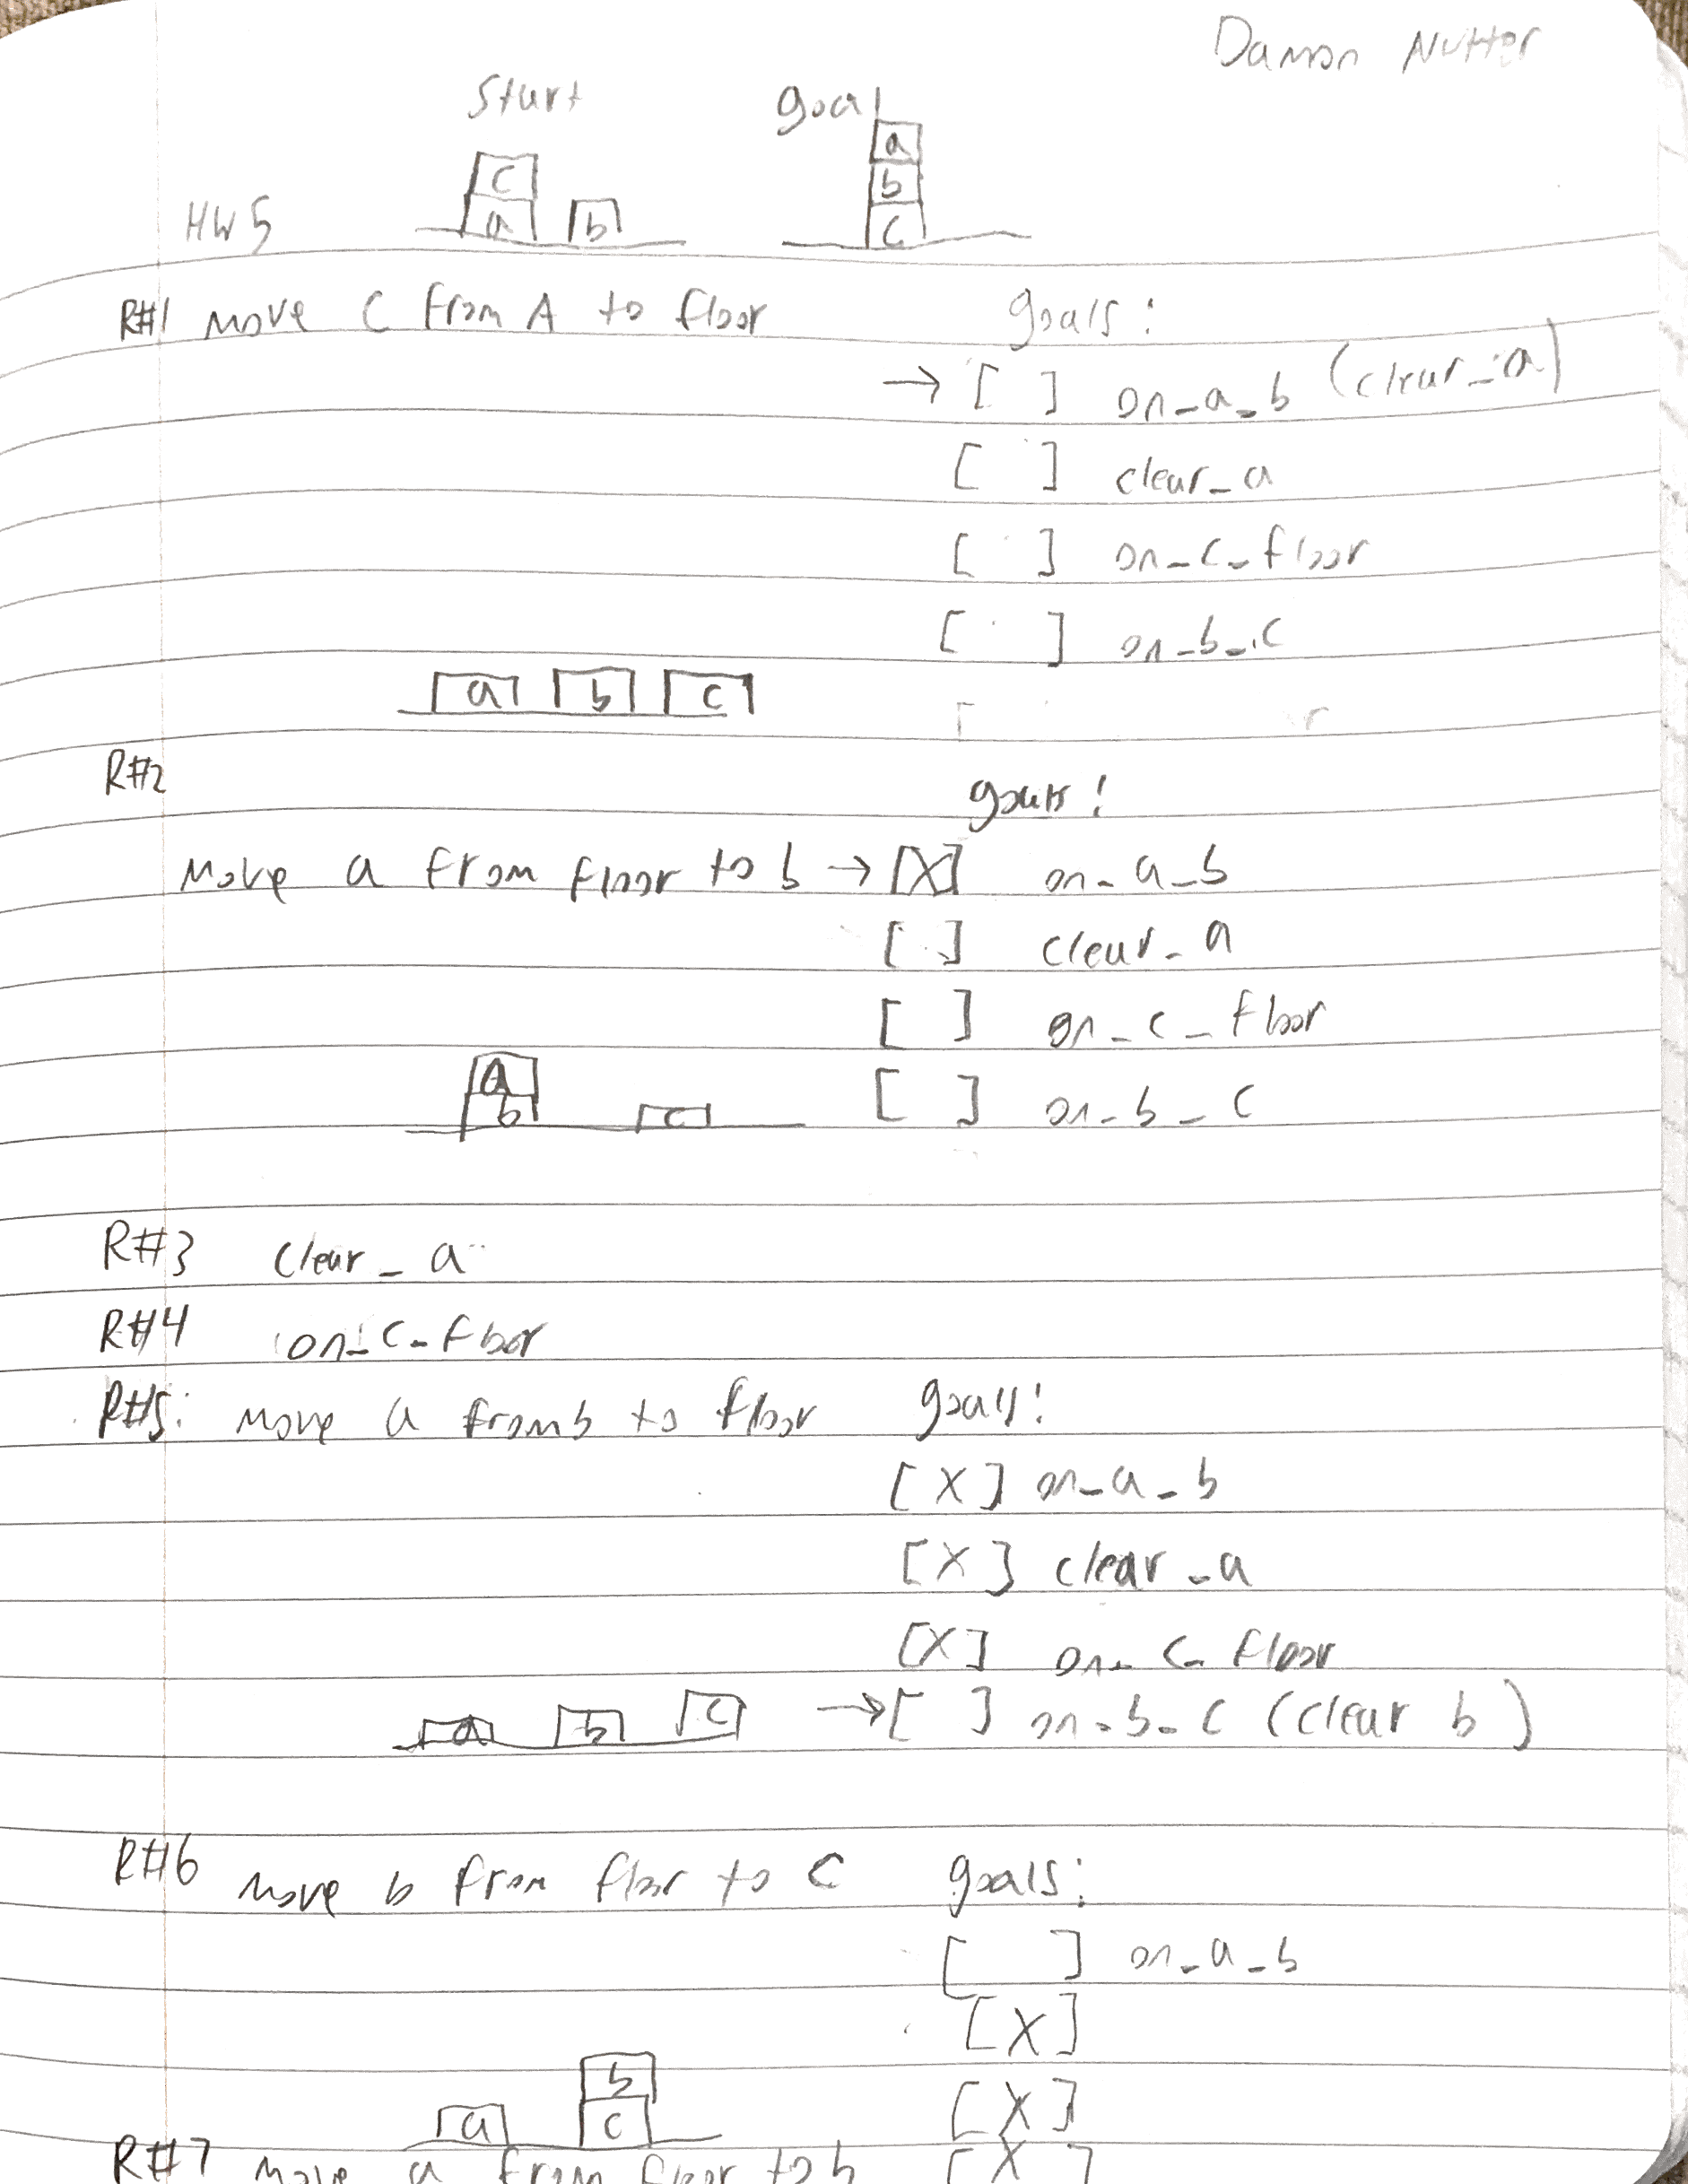 Damon Nutter
Start goal
c a
a b b
HW5 c
R#1 Move C from A to floor goals:
→ [ ] on_a_b (clear_a)
[ ] clear_a
[ ] on_c_floor
[ ] on_b_c
a b c
R#2
goals!
Move a from floor to b → [X] on_a_b
[ ] clear_a
[ ] on_c_floor
A
b c [ ] on_b_c
R#3 clear_a
R#4 on_c_floor
R#5: move a from b to floor goals!
[X] on_a_b
[X] clear_a
[X] on_c_floor
a b c → [ ] on_b_c (clear b)
R#6 move b from floor to C goals:
[ ] on_a_b
[X]
b
a c [X]
R#7 move a from floor to b [X]